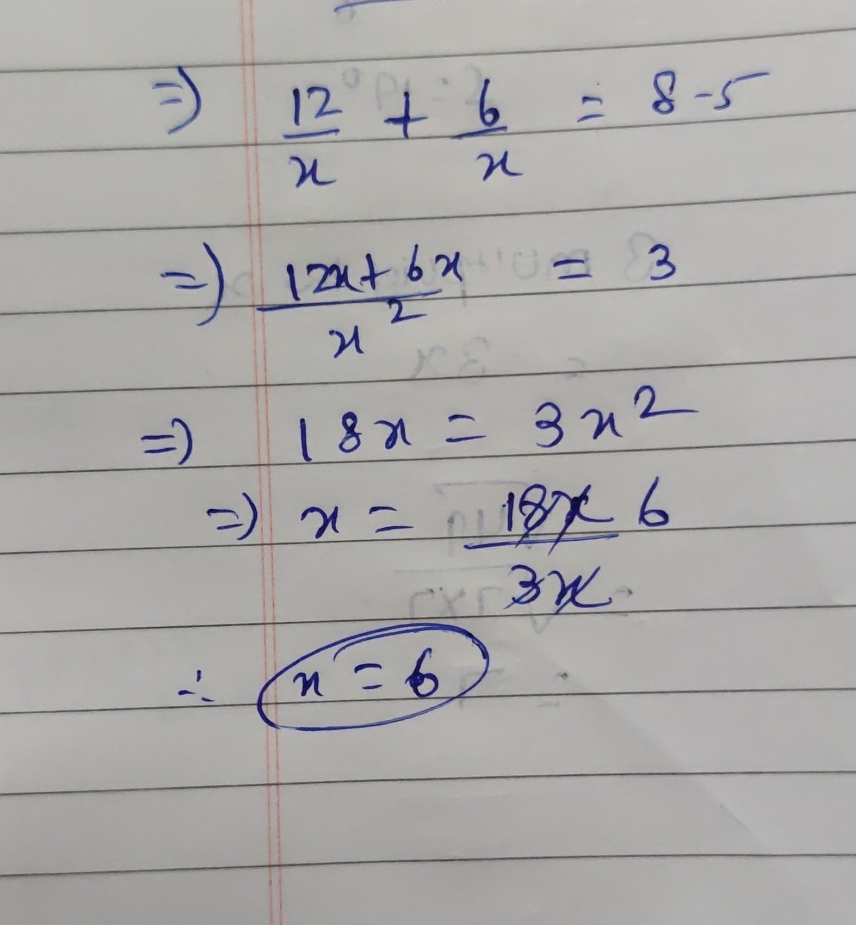 ⇒ 12/x + 6/x = 8-5
⇒ 12x+6x/x² = 3
⇒ 18x = 3x²
⇒ x = 18x/3x 6
∴ x = 6